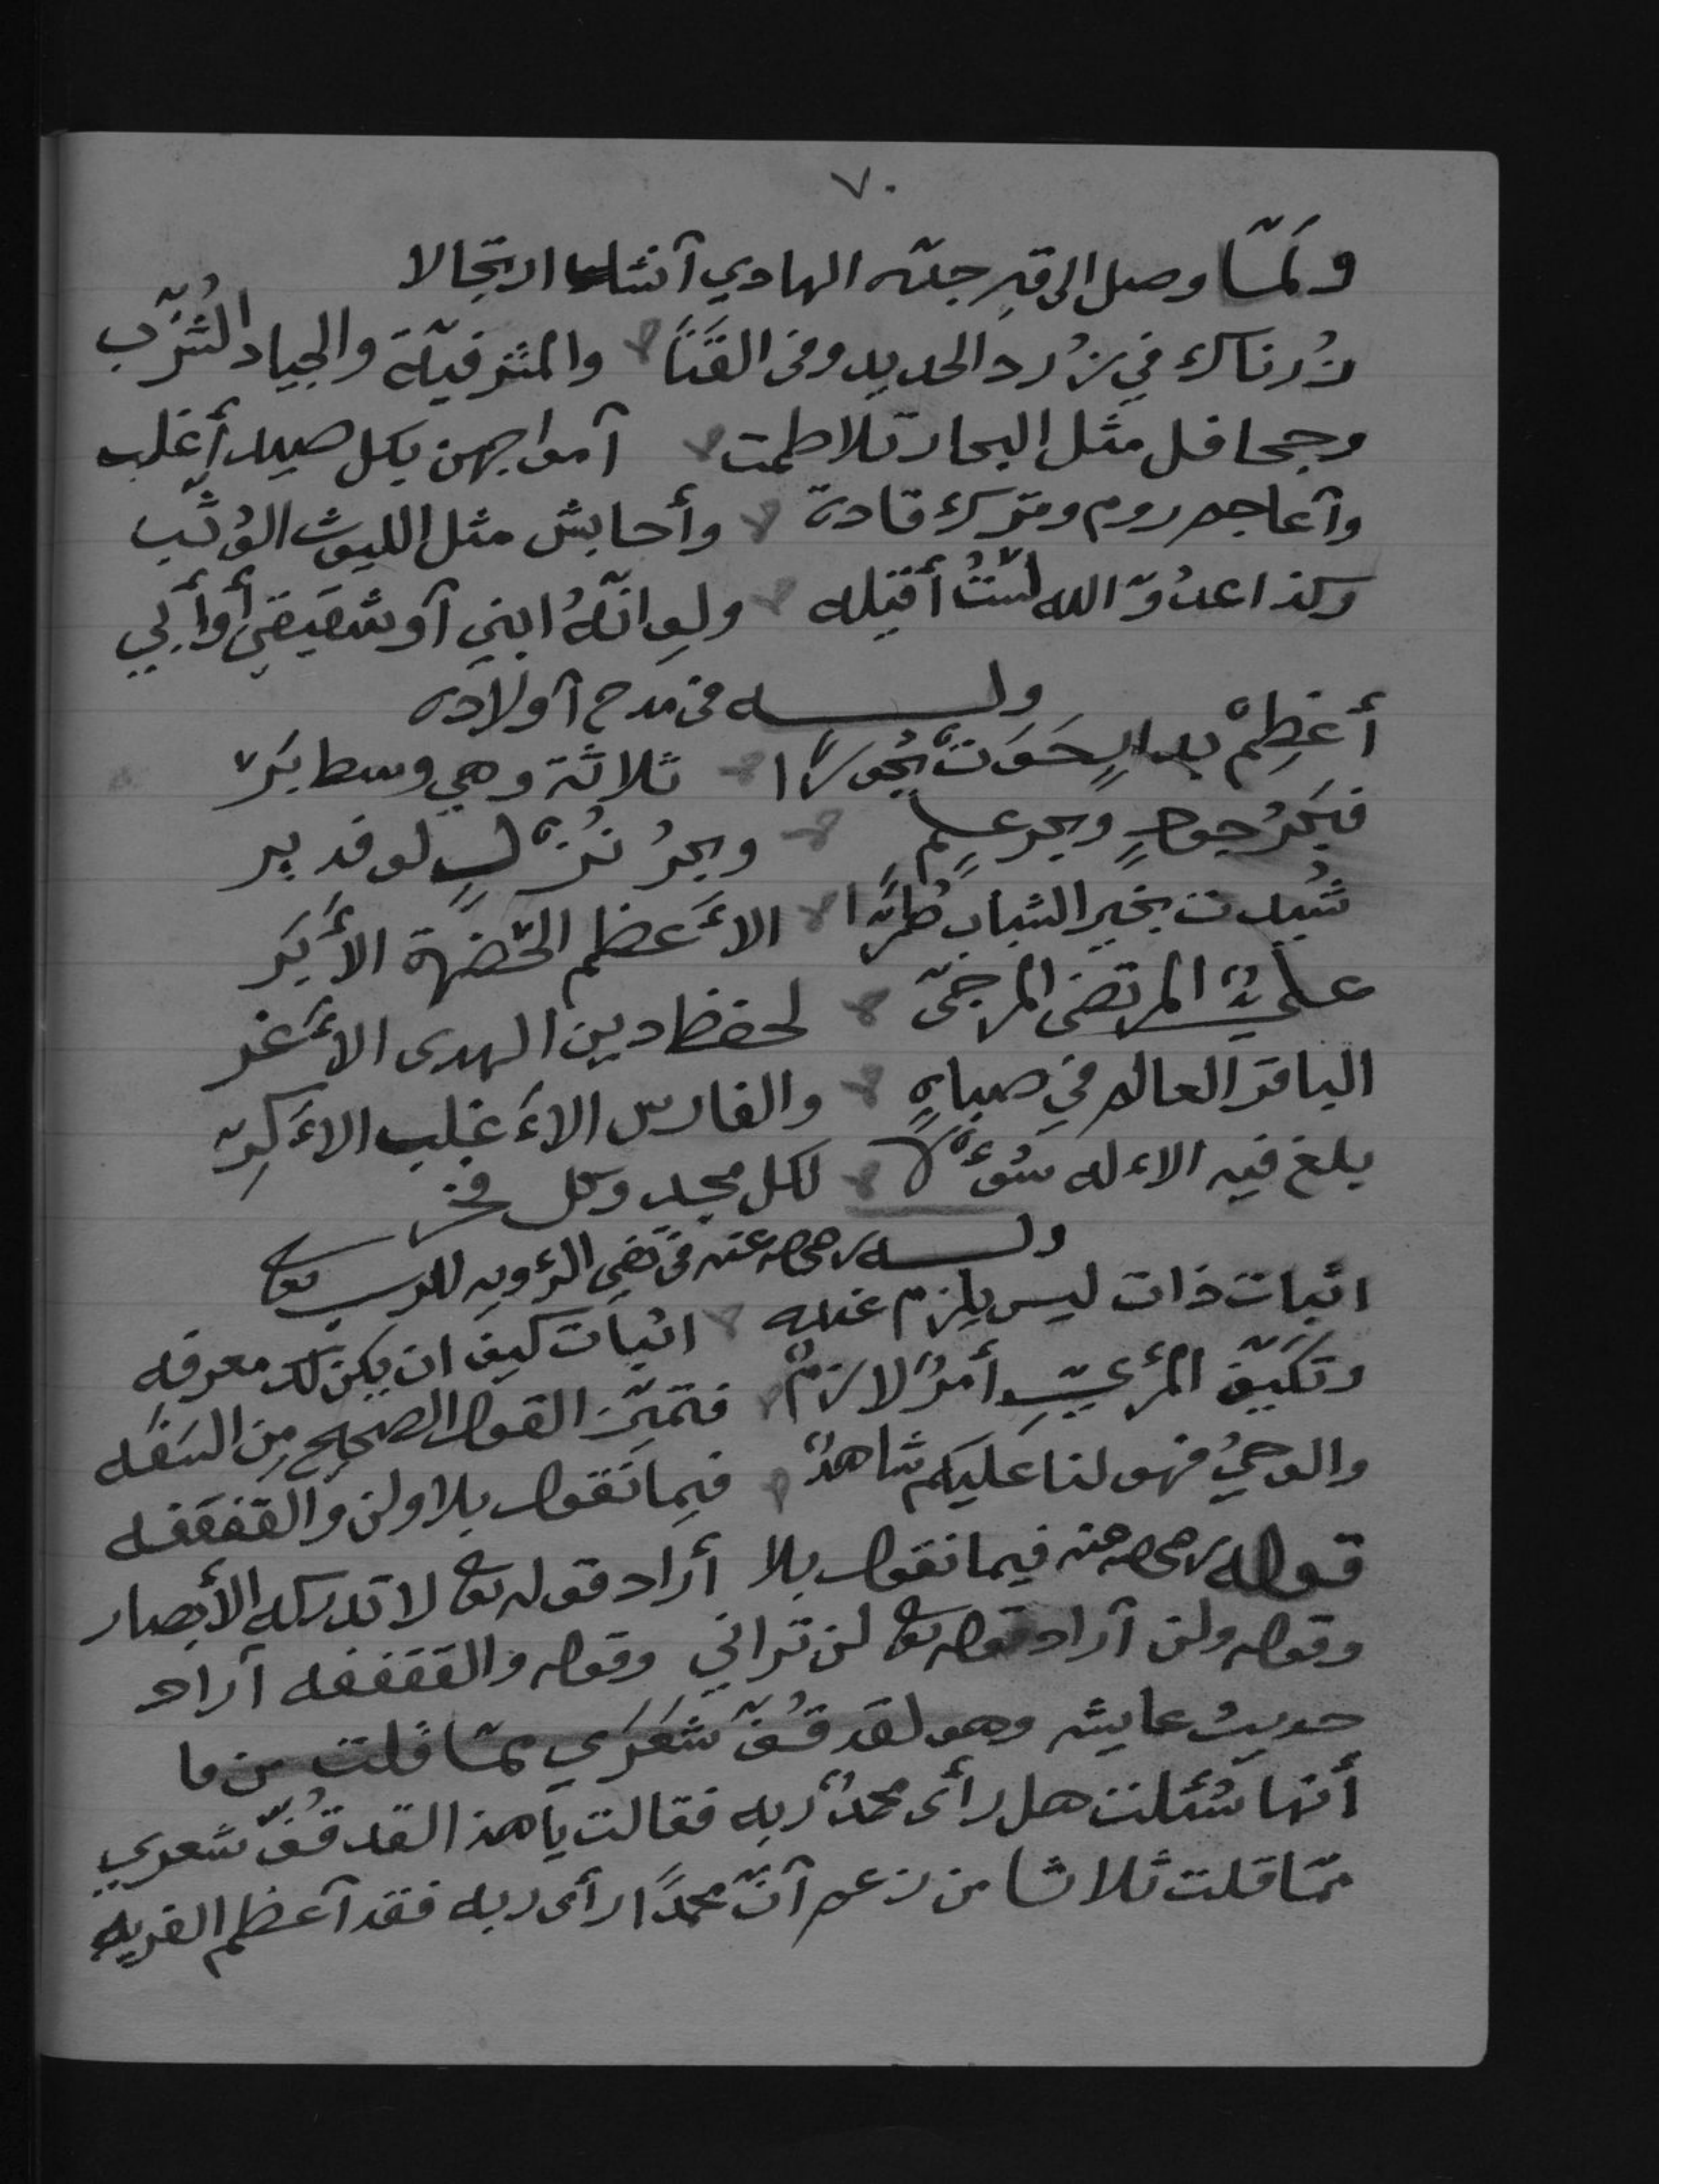 ٧٠
ولَمّا وصل الى قبر جدّه الهادي أنشاء ارتجالا
زُرناك في زُرد الحديد وفى القَنَا والمشرفيّة والجياد الشُزّب
وجحافل مثل البحار تلاطمت أمواجهن بكل صيد أغلب
وأعاجم روم وترك قادة وأحابش مثل الليوث الوُثّب
وكذا عدُوّ الله لسْتُ أقيله ولو انّهُ ابني أو شقيقي أو أبي
ولـــه في مدح أولاده
أَعْظِمْ بدارٍ حَوَتْ بُحُورًا ثلاثة وهي وسط بَرّ
فبَحرُ جودٍ وبحر علمٍ وبحرُ نُزْلٍ لوفد بر
شُيدت بخير الشباب طُرًّا الأَعظم الخضرة الأَبَر
عليٌّ المرتضى المرجّى لحفظ دين الهدى الأَغر
الباقر العالم في صباهِ والفارس الأَغلب الأَكرّ
بلغ فيه الاءله سُؤْلًا لكل مجد وكل فخر
ولـــه رضي الله عنه في نفي الرؤيه للرب تعالى
اثبات ذات ليس يلزم عنده اثبات كيف ان يكن لك معرفه
وتكَيّف المرءيِّ أمرٌ لازمٌ فتميّز القول الصحيح مِن السَفَه
والوحيُ فهو لنا عليكم شاهدٌ فيما نقول بلا ولن والقفقفه
قوله رضي الله عنه فيما نقول بلا أراد قوله تعالى لا تدركه الأبصار
وقوله ولن أراد قوله تعالى لن تراني وقوله والقفقفه أراد
حديث عايشه وهو لقد قُفّ شَعَرَي ممّا قلت من ما
أنها سُئلت هل رأى محمدٌ ربه فقالت يا هذا لقد قُفّ شعري
ممّا قلت ثلاثا من زعم أنّ محمدًا رأى ربه فقد أعظم الفريه